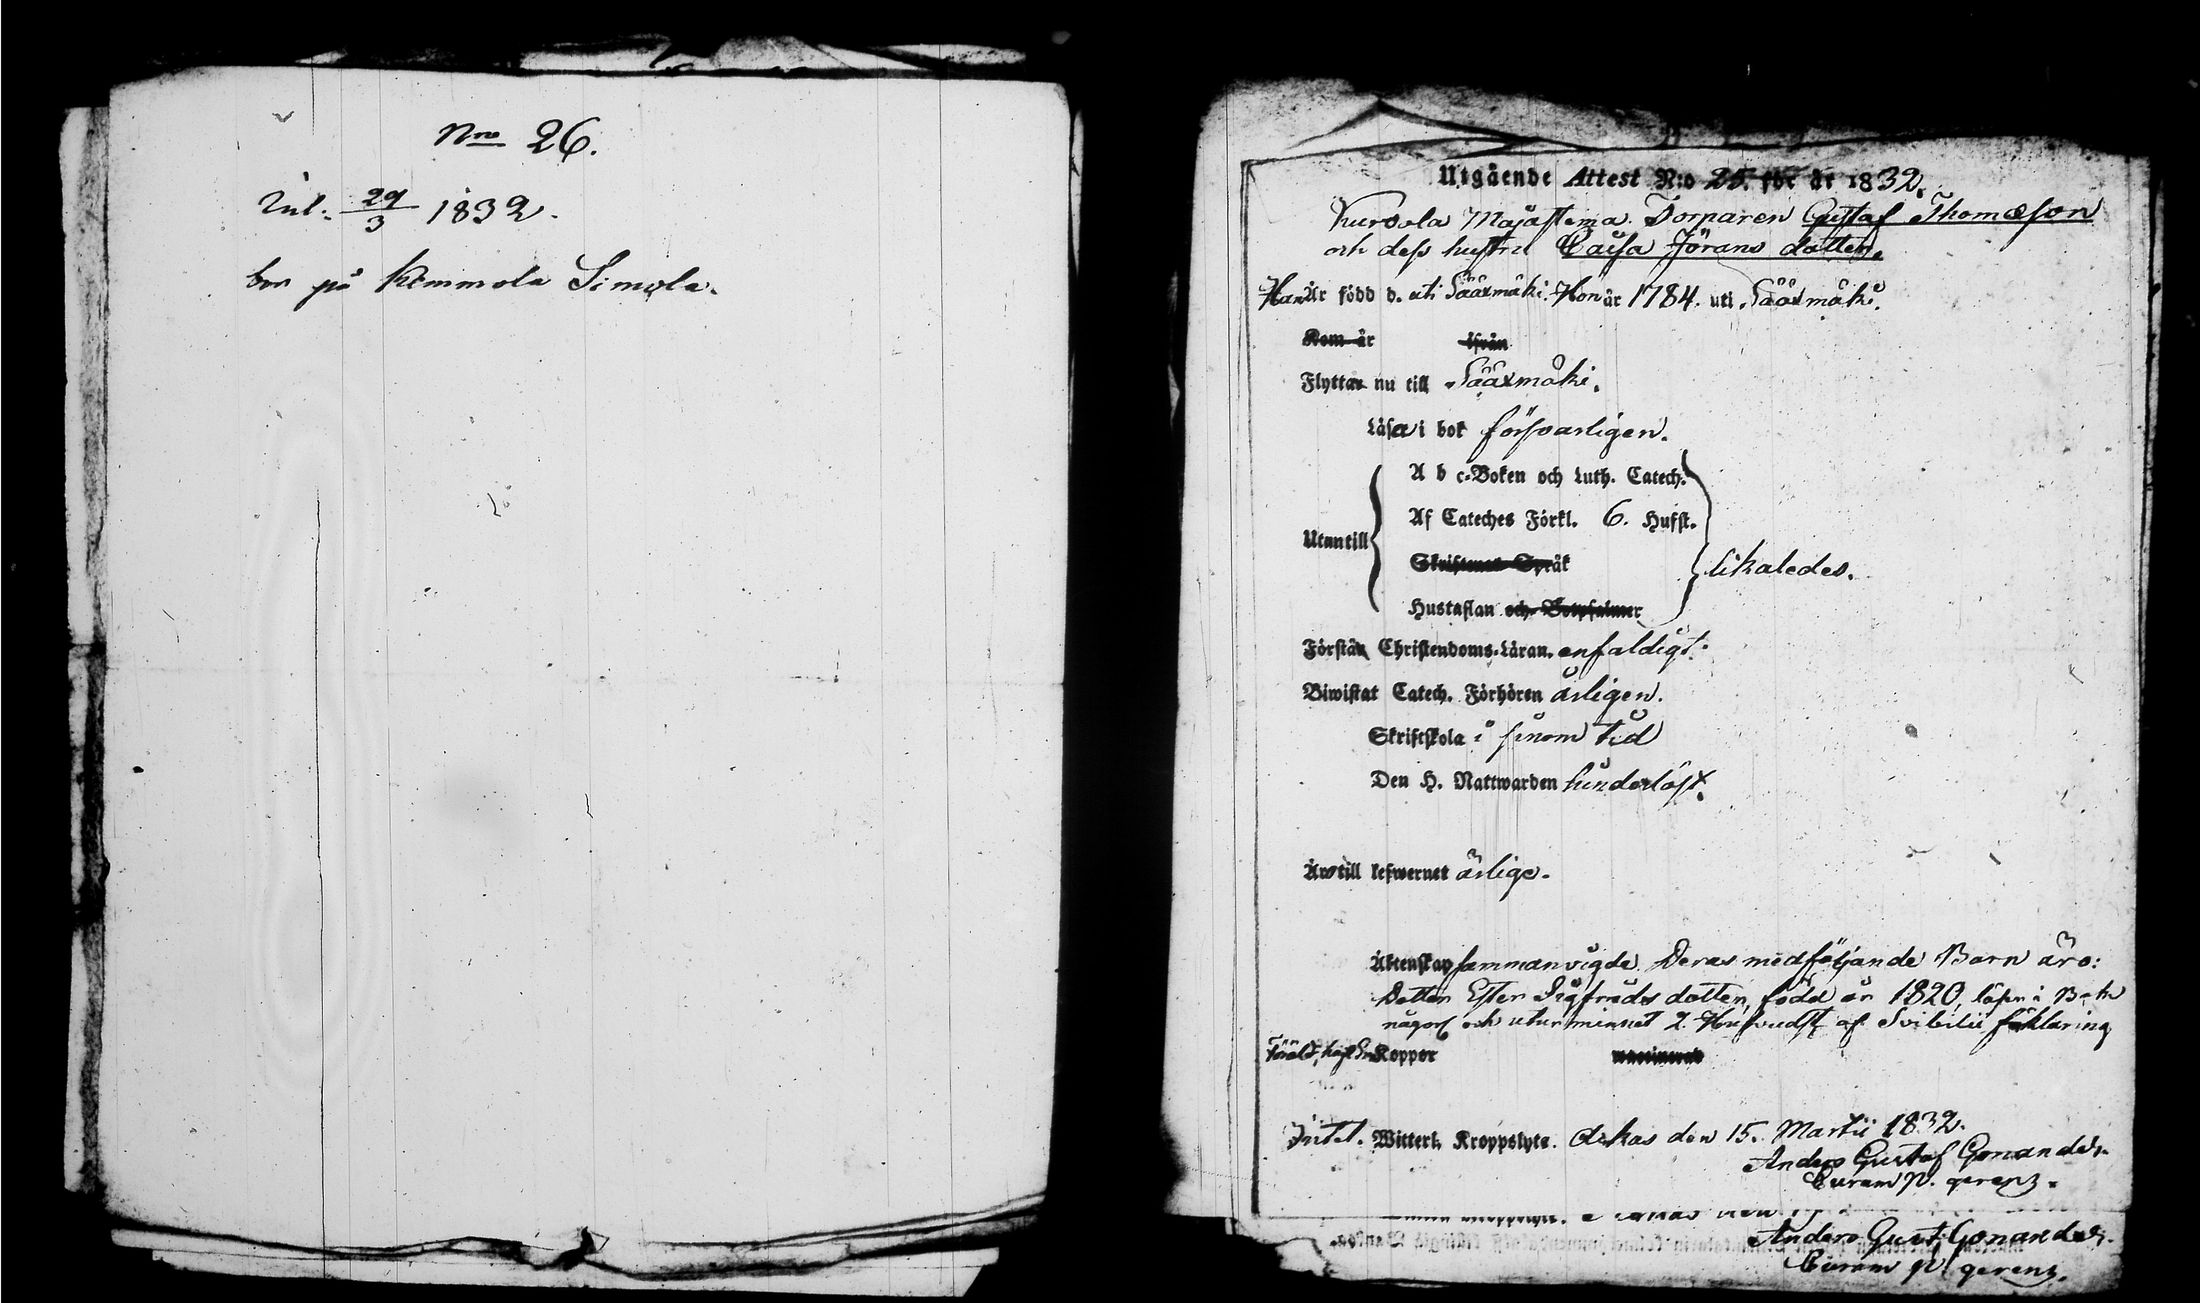 Nro 26.
Inl. 29/3 1832.
bor på Kemmola Simola.
Utgående Attest N:o 25. för år 1832.
Kurvola Majastema Torparen Gustaf Thomæson
och dess hustru Caisa Jörans dotter.
Han Är född d. uti Sääxmäki. Hon år 1784. uti Sääxmäki.
Kom år ifrån
Flytta nu till Sääxmäki.
Läsa i bok försvarligen.
A b c-Boken och Luth. Catech.
Af Cateches Förkl. 6. Hufst.
Utantill
Skriftenes Språk
likaledes.
Hustaflan och Botpsalmer
Förstå Christendoms-Läran. enfaldigt.
Biwistat Catech. Förhören årligen.
Skriftskola i sinom tid
Den H. Nattwarden hinderlöst.
Äro till lefwernet ärlige.
Äktenskap sammanvigde. Deras medföljande Barn äro:
Dotter Ester Sigfrids dotter, född år 1820, läser i Bok
något och utur minnet 2. Hufvudst. af Svibilii förklaring
Föräld. haft Kopper
Intet. Witterl. Kroppslyte. Ackas den 15. Martii 1832.
Anders Gustaf Gonander.
Curam p. gerenz.
Anders Gust. Gonander.
Curam p. gerenz.